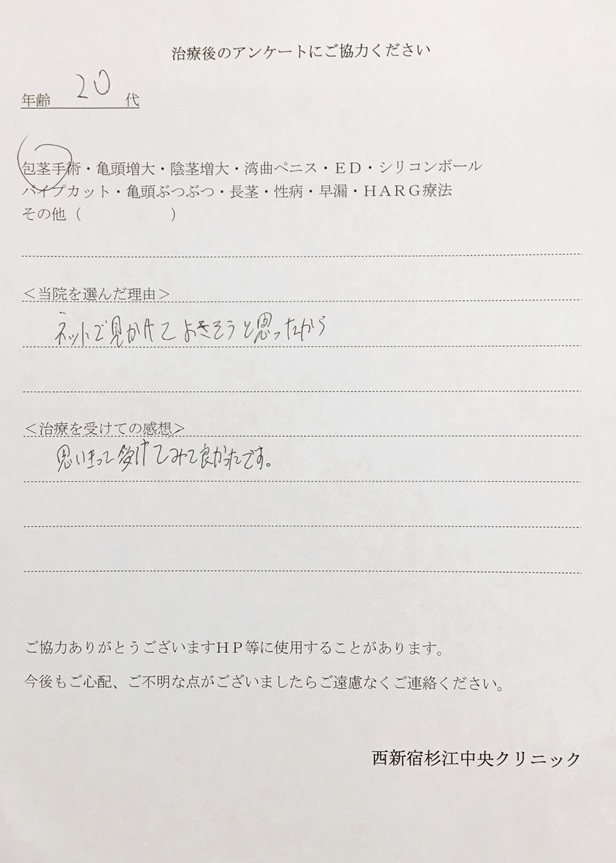 治療後のアンケートにご協力ください
年齢 20 代
包茎手術・亀頭増大・陰茎増大・湾曲ペニス・ED・シリコンボール
パイプカット・亀頭ぶつぶつ・長茎・性病・早漏・HARG療法
その他（　　　　　　）
＜当院を選んだ理由＞
ネットで見かけてよさそうと思ったから
＜治療を受けての感想＞
思いきって受けてみて良かったです。
ご協力ありがとうございますHP等に使用することがあります。
今後もご心配、ご不明な点がございましたらご遠慮なくご連絡ください。
西新宿杉江中央クリニック